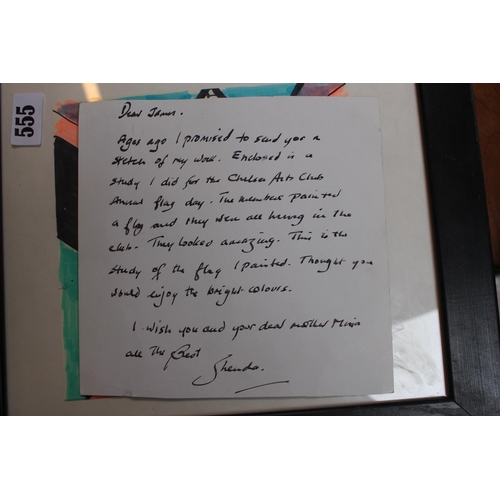 555
Dear James.
Ages ago I promised to send you a
sketch of my work. Enclosed is a
study I did for the Chelsea Arts Club
Annual flag day. The members painted
a flag and they were all hung in the
club. They looked amazing. This is the
study of the flag I painted. Thought you
would enjoy the bright colours.
I wish you and your dear mother
all the Best
Ghenda.